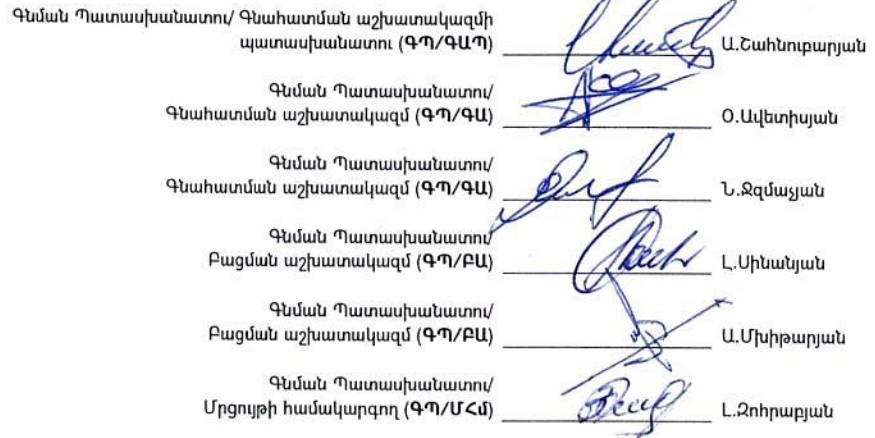 Գնման Պատասխանատու/ Գնահատման աշխատակազմի
պատասխանատու (ԳՊ/ԳԱՊ) Ա.Շահնուբարյան
Գնման Պատասխանատու/
Գնահատման աշխատակազմ (ԳՊ/ԳԱ) Օ.Ավետիսյան
Գնման Պատասխանատու/
Գնահատման աշխատակազմ (ԳՊ/ԳԱ) Ն.Ջզմաչյան
Գնման Պատասխանատու/
Բացման աշխատակազմ (ԳՊ/ԲԱ) Լ.Սինանյան
Գնման Պատասխանատու/
Բացման աշխատակազմ (ԳՊ/ԲԱ) Ա.Մխիթարյան
Գնման Պատասխանատու/
Մրցույթի համակարգող (ԳՊ/ՄՀմ) Լ.Զոհրաբյան